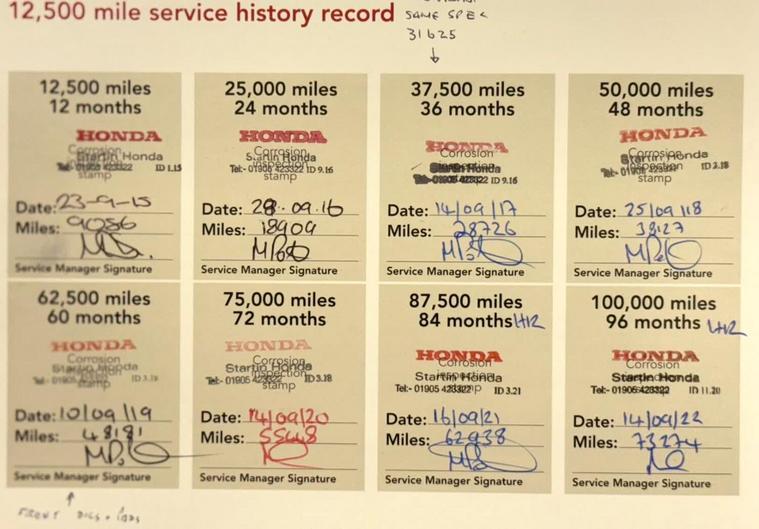 12,500 mile service history record
SAME SPEC
31625
12,500 miles
12 months
HONDA
Corrosion
Startin Honda
inspection
Tel:- 01905 423322 ID 1.15
stamp
Date: 23-9-15
Miles: 9056
Service Manager Signature
25,000 miles
24 months
HONDA
Corrosion
Startin Honda
inspection
Tel:- 01905 423322 ID 9.16
stamp
Date: 28.09.16
Miles: 18909
Service Manager Signature
37,500 miles
36 months
HONDA
Corrosion
Startin Honda
inspection
Tel:- 01905 423322 ID 9.16
stamp
Date: 14/09/17
Miles: 28726
Service Manager Signature
50,000 miles
48 months
HONDA
Corrosion
Startin Honda
inspection
Tel:- 01905 423322 ID 3.18
stamp
Date: 25/09/18
Miles: 38127
Service Manager Signature
62,500 miles
60 months
HONDA
Corrosion
Startin Honda
inspection
Tel:- 01905 423322 ID 3.18
stamp
Date: 10/09/19
Miles: 48181
Service Manager Signature
75,000 miles
72 months
HONDA
Corrosion
Startin Honda
inspection
Tel:- 01905 423322 ID 3.18
stamp
Date: 14/09/20
Miles: 55448
Service Manager Signature
87,500 miles
84 months HR
HONDA
Corrosion
inspection
Startin Honda
stamp
Tel:- 01905 423322 ID 3.21
Date: 16/09/21
Miles: 62938
Service Manager Signature
100,000 miles
96 months HR
HONDA
Corrosion
Startin Honda
inspection
Tel:- 01905 423322 ID 11.20
stamp
Date: 14/09/22
Miles: 73274
Service Manager Signature
FRONT DISCS + PADS